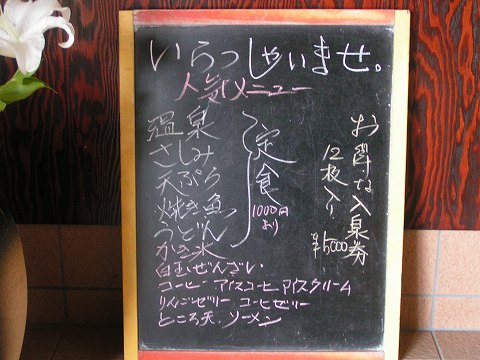 いらっしゃいませ。
人気メニュー
温泉
さしみ
天ぷら
焼き魚
うどん
かき氷
定食
1000円
より
白玉ぜんざい
コーヒー アイスコーヒー アイスクリーム
りんごゼリー コーヒゼリー
ところ天、ソーメン
お得な入泉券
12枚入り
¥5000